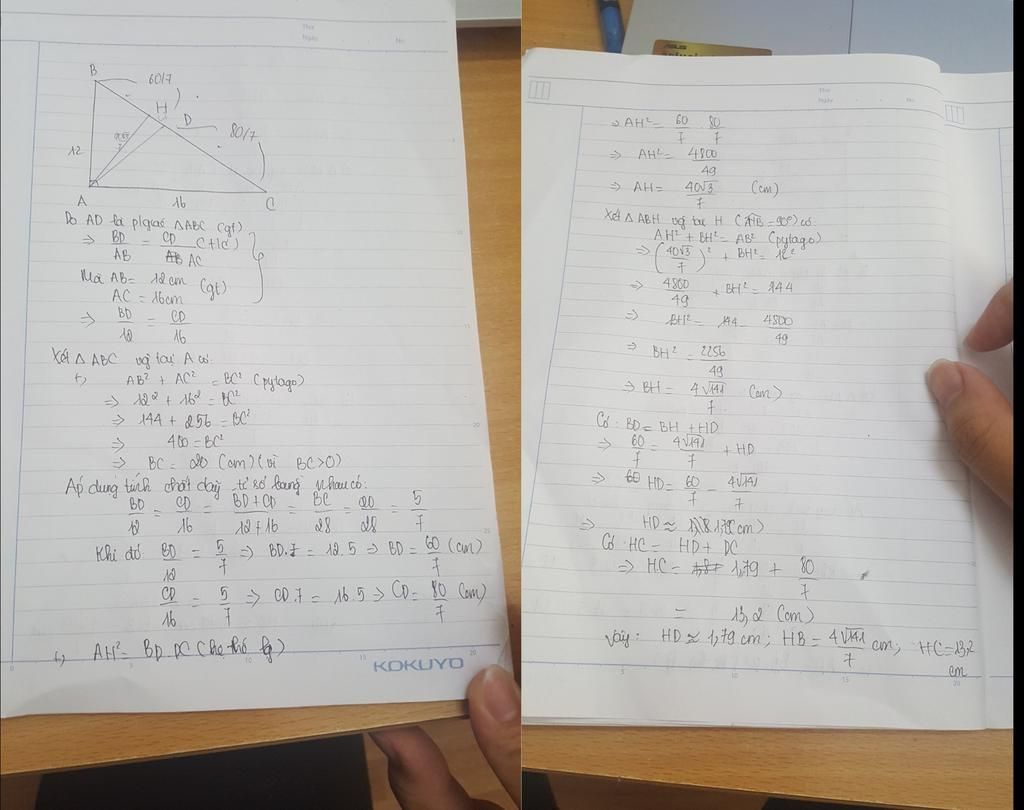 Thứ
Ngày No.
B
60/7
H
D
80/7
12
A
16
C
Do AD là p/giác △ABC (gt)
⇒ BD/AB = CD/AC (t/c)
Mà AB = 12cm (gt)
AC = 16cm
⇒ BD/12 = CD/16
Xét △ABC vg tại A có:
+, AB² + AC² = BC² (pytago)
⇒ 12² + 16² = BC²
⇒ 144 + 256 = BC²
⇒ 400 = BC²
⇒ BC = 20 (cm) (vì BC>0)
Áp dụng tính chất dãy tỉ số bằng nhau có:
BD/12 = CD/16 = BD+CD/12+16 = BC/28 = 20/28 = 5/7
Khi đó BD/12 = 5/7 ⇒ BD.7 = 12.5 ⇒ BD = 60/7 (cm)
CD/16 = 5/7 ⇒ CD.7 = 16.5 ⇒ CD = 80/7 (cm)
+, AH² = BD.DC (hệ thức lg)
KOKUYO
Thứ
Ngày No.
⇒ AH² = 60/7 . 80/7
⇒ AH² = 4800/49
⇒ AH = 40√3/7 (cm)
Xét △ABH vg tại H (AHB = 90°) có:
AH² + BH² = AB² (pytago)
⇒ (40√3/7)² + BH² = 12²
⇒ 4800/49 + BH² = 144
⇒ BH² = 144 - 4800/49
⇒ BH² = 2256/49
⇒ BH = 4√141/7 (cm)
Có: BD = BH + HD
⇒ 60/7 = 4√141/7 + HD
⇒ HD = 60/7 - 4√141/7
⇒ HD ≈ 1,79 (cm)
Có HC = HD + DC
⇒ HC = 1,79 + 80/7
= 13,2 (cm)
Vậy: HD ≈ 1,79 cm; HB = 4√141/7 cm; HC = 13,2
cm
ASUS